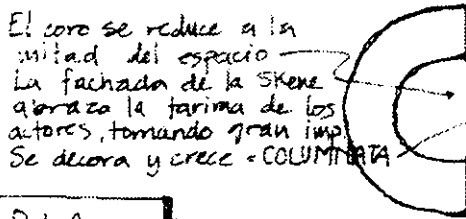 El coro se reduce a la
mitad del espacio
La fachada de la Skene
abraza la tarima de los
actores, tomando gran imp
Se decora y crece = COLUMNATA